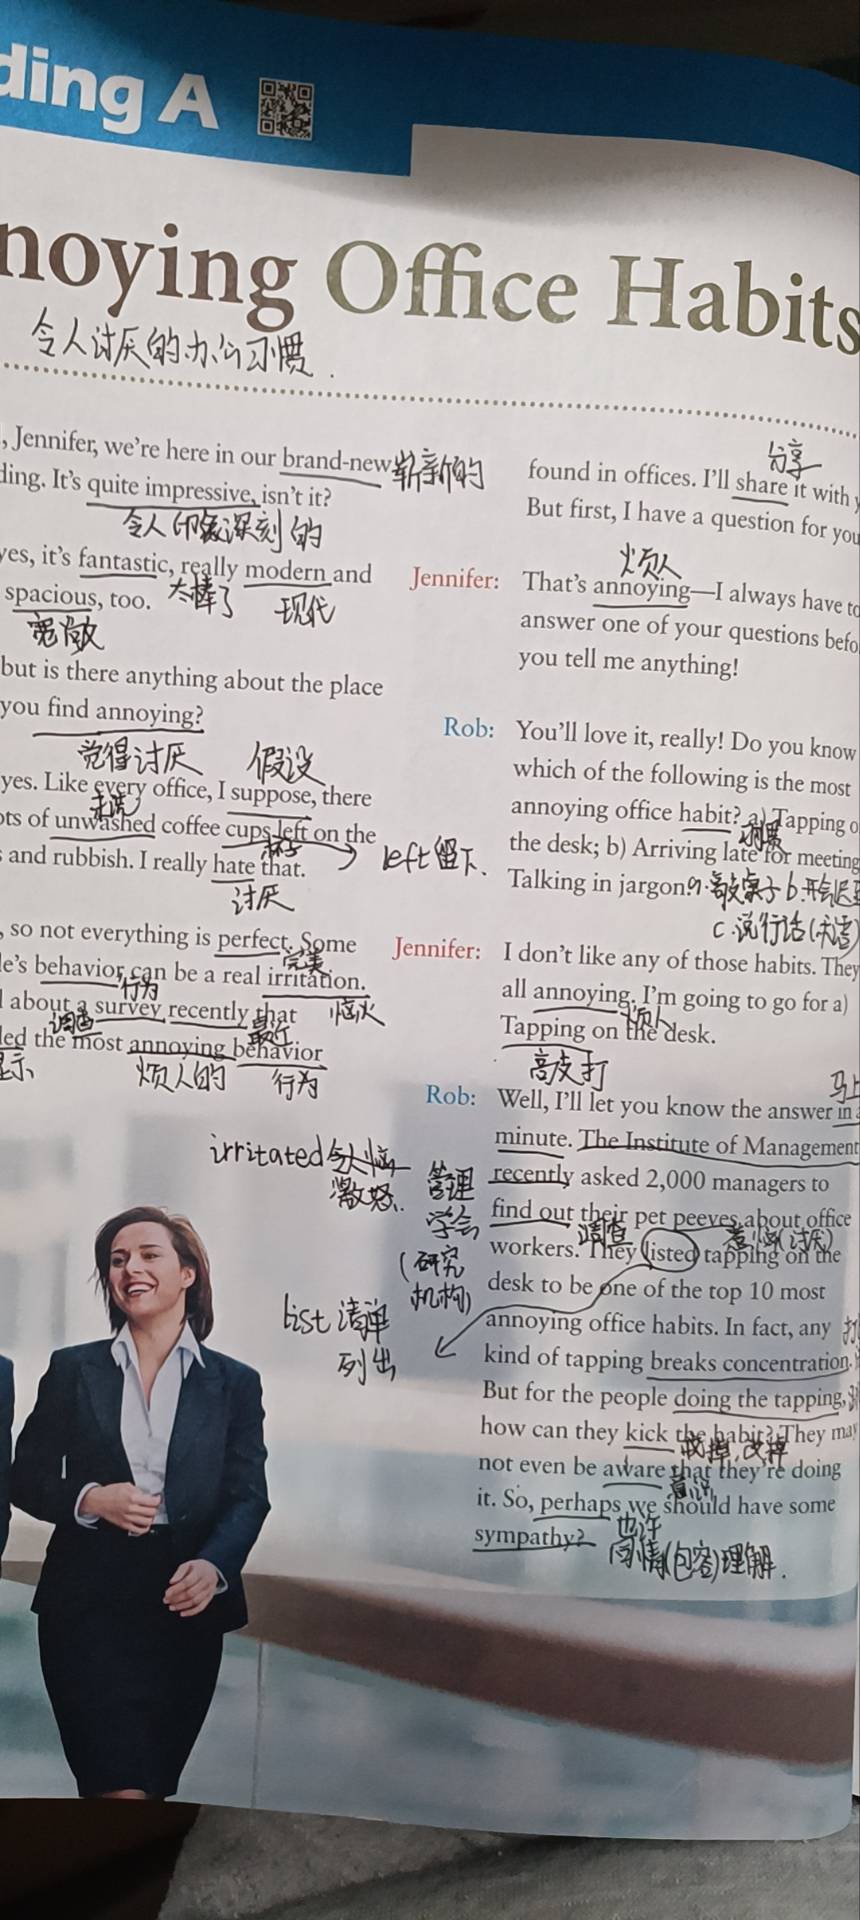 ding A
noying Office Habits
令人讨厌的办公习惯.
, Jennifer, we're here in our brand-new 崭新的
ding. It's quite impressive, isn't it?
令人印象深刻的
yes, it's fantastic, really modern and
太棒了 现代
spacious, too.
宽敞
but is there anything about the place
you find annoying?
觉得讨厌 假设
yes. Like every office, I suppose, there
未洗
ots of unwashed coffee cups left on the
杯子 left 留下.
s and rubbish. I really hate that.
讨厌
, so not everything is perfect. Some
完美
le's behavior can be a real irritation.
行为 恼火
l about a survey recently that
调查 最近
led the most annoying behavior
显示 烦人的 行为
irritated 令人恼
激怒.
管理
学会
(研究
机构)
list 清单
列出
分享
found in offices. I'll share it with y
But first, I have a question for you
烦人
Jennifer: That's annoying—I always have to
answer one of your questions befo
you tell me anything!
Rob: You'll love it, really! Do you know
which of the following is the most
annoying office habit? a) Tapping o
习惯
the desk; b) Arriving late for meeting
Talking in jargon? a.敲桌子 b.开会迟到
c.说行话
Jennifer: I don't like any of those habits. They
all annoying. I'm going to go for a)
烦人
Tapping on the desk.
敲打
马上
Rob: Well, I'll let you know the answer in a
minute. The Institute of Management
recently asked 2,000 managers to
find out their pet peeves about office
调查 惹恼(讨厌)
workers. They listed tapping on the
desk to be one of the top 10 most
annoying office habits. In fact, any
kind of tapping breaks concentration.
But for the people doing the tapping,
how can they kick the habit? They may
戒掉,改掉
not even be aware that they're doing
意识
it. So, perhaps we should have some
也许
sympathy?
同情(包容)理解.